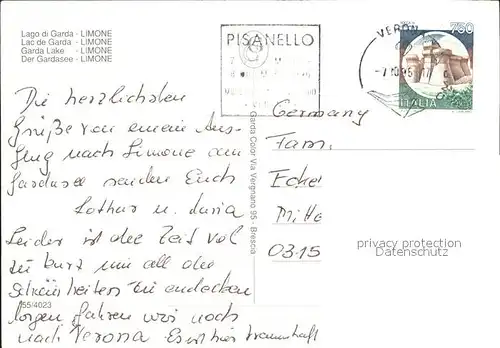 Lago di Garda - LIMONE
Lac de Garda - LIMONE
Garda Lake - LIMONE
Der Gardasee - LIMONE
PISANELLO
VERON
-7.10.95
750
ITALIA
Die herzlichsten
Grüße von einem Aus-
flug nach Limone am
Gardasee senden Euch
Lothar u. Daria
Leider ist die Zeit viel
zu kurz um all die
Schönheiten zu entdecken
Morgen fahren wir noch
nach Verona. Es ist hier traumhaft
55/4023
Garda Color Via Vergnano 95 - Brescia
Germany
Fam.
Ecke
Mitte
03-15
privacy protection
Datenschutz